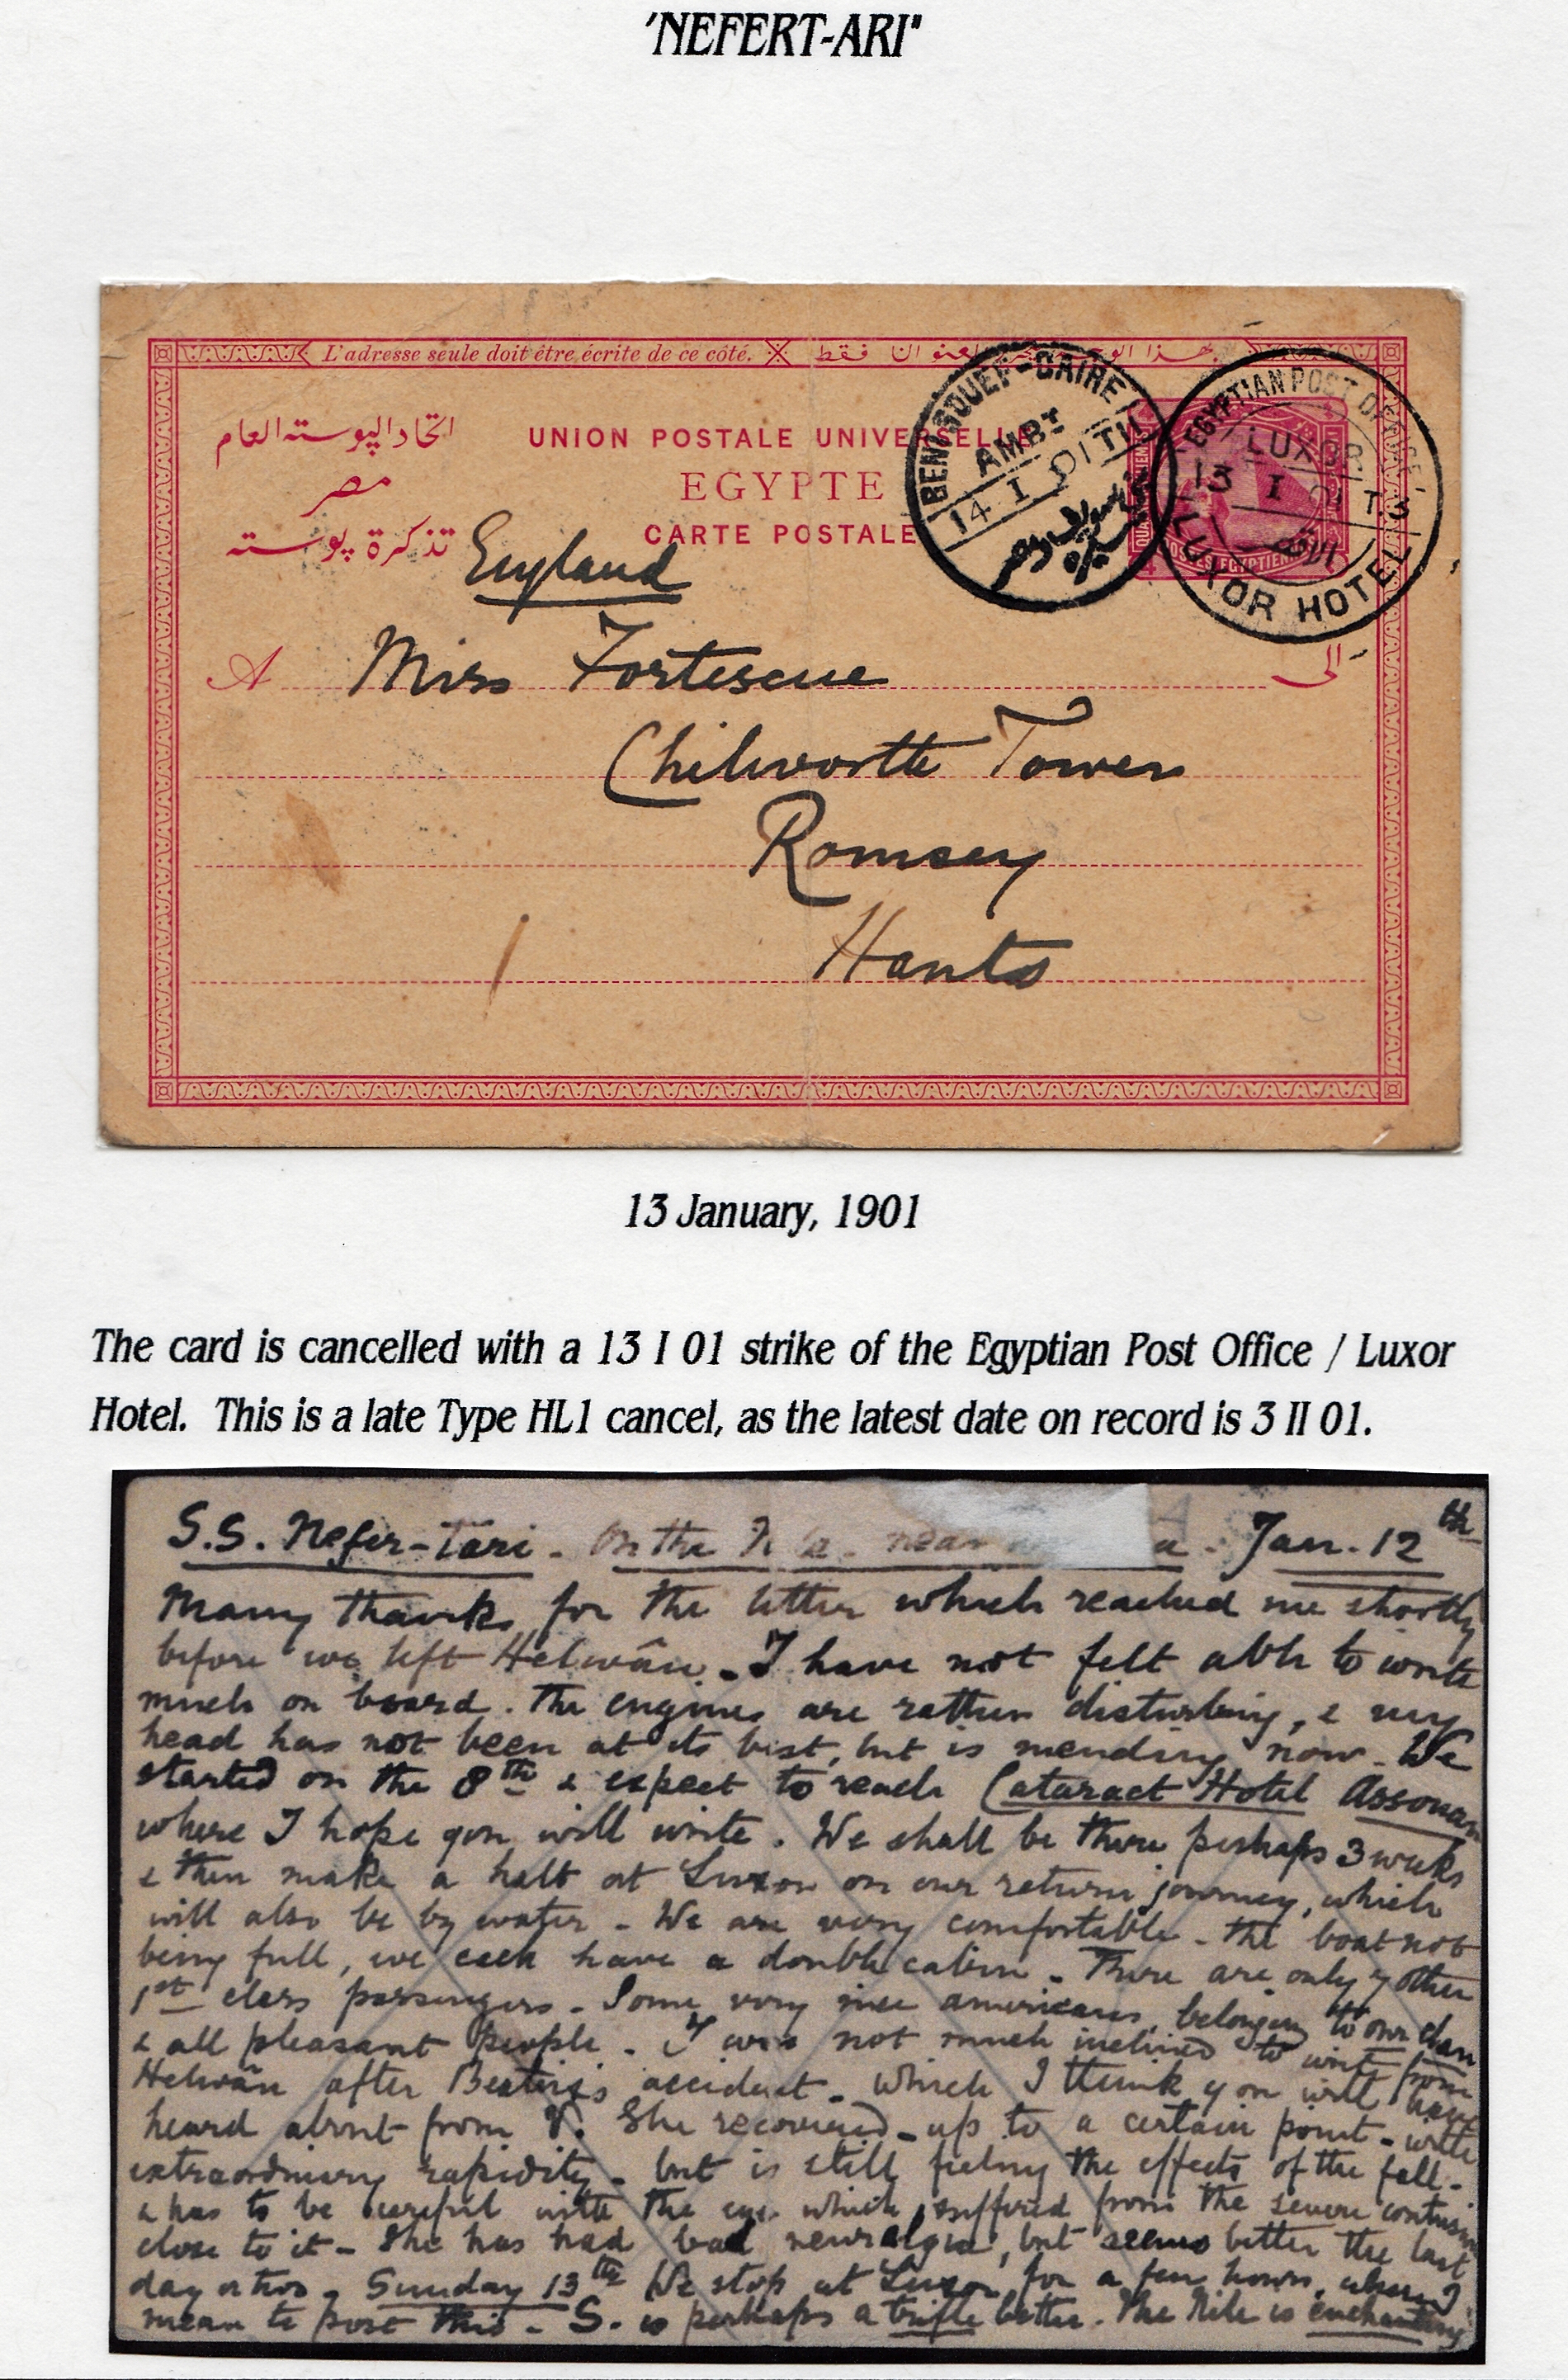 'NEFERT-ARI"
L'adresse seule doit être écrite de ce côté.
اتحاد البوسته العام
مصر
تذكرة بوسته
UNION POSTALE UNIVERSELLE
EGYPTE
CARTE POSTALE
BENI-SOUEF-CAIRE
AMBT
14 I 01 TII
EGYPTIAN POST OFFICE
LUXOR
13 I 01 T3
LUXOR HOTEL
England
A Miss Fortescue الى
Chilworth Tower
Romsey
Hants
13 January, 1901
The card is cancelled with a 13 I 01 strike of the Egyptian Post Office / Luxor
Hotel. This is a late Type HL1 cancel, as the latest date on record is 3 II 01.
S.S. Nefer-Tari - On the near Jan. 12th
Many thanks for the letter which reached me shortly
before we left Helwân. - I have not felt able to write
much on board. The engines are rather disturbing, & my
head has not been at its best, but is mending now. We
started on the 8th & expect to reach Cataract Hotel Assouan
where I hope you will write. We shall be there perhaps 3 weeks
& then make a halt at Luxor on our return journey, which
will also be by water - We are very comfortable - the boat not
being full, we each have a double cabin. There are only 7 other
1st class passengers - Some very nice americans, belonging to our
& all pleasant people - I was not much inclined to write from
Helwân after accident - which I think you will have
heard about from V. She recovered - up to a certain point - with
extraordinary rapidity - but is still feeling the effects of the fall -
& has to be careful with the eye which suffered from the severe contusion
close to it - She has had bad neuralgia, but seems better the last
day or two. Sunday 13th We stop at Luxor for a few hours, when I
mean to post this - S. is perhaps a trifle better. The Nile is enchanting